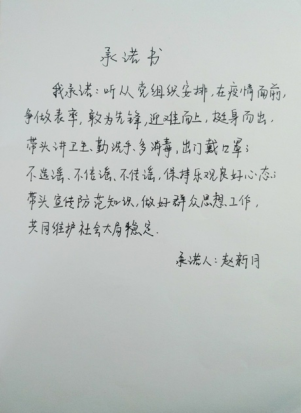 承诺书
我承诺：听从党组织安排，在疫情面前，
争做表率，敢为先锋，迎难而上，挺身而出，
带头讲卫生、勤洗手、多消毒，出门戴口罩；
不造谣、不信谣、不传谣，保持乐观良好心态；
带头宣传防范知识，做好群众思想工作，
共同维护社会大局稳定．
承诺人：赵新月